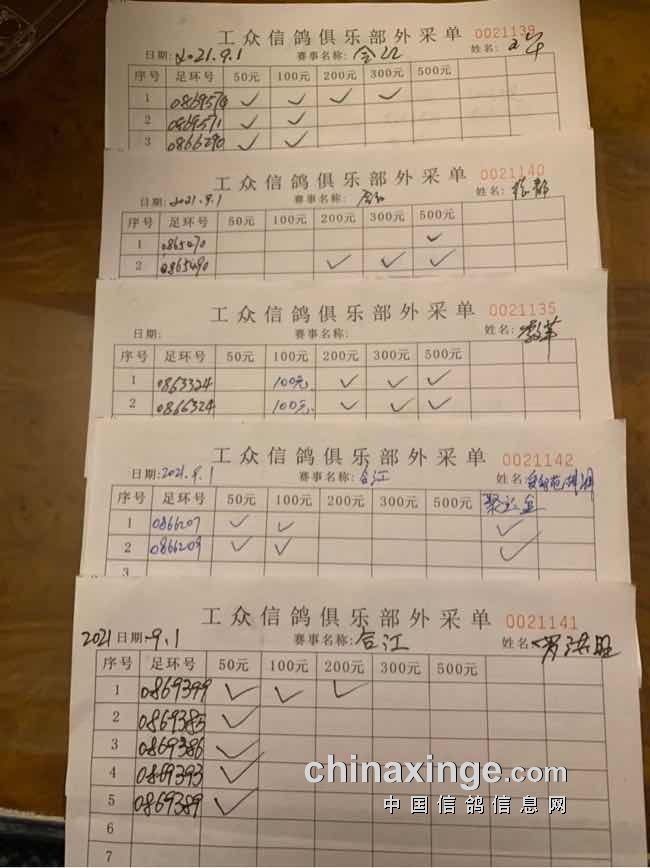 工众信鸽俱乐部外采单 0021139
日期: 2021.9.1 赛事名称: 合江 姓名:
序号 足环号 50元 100元 200元 300元 500元
1 0869574 ✓ ✓ ✓ ✓
2 0869571 ✓ ✓
3 0866290 ✓ ✓
工众信鸽俱乐部外采单 0021140
日期: 2021.9.1 赛事名称: 合江 姓名:
序号 足环号 50元 100元 200元 300元 500元
1 0865470 ✓
2 0865490 ✓ ✓ ✓
工众信鸽俱乐部外采单 0021135
日期: 赛事名称: 姓名:
序号 足环号 50元 100元 200元 300元 500元
1 0863324 100元 ✓ ✓ ✓
2 0866324 100元 ✓ ✓ ✓
工众信鸽俱乐部外采单 0021142
日期: 2021.9.1 赛事名称: 合江 姓名:
序号 足环号 50元 100元 200元 300元 500元
1 0866207 ✓ ✓ ✓
2 0866209 ✓ ✓ ✓
3
工众信鸽俱乐部外采单 0021141
2021 日期: .9.1 赛事名称: 合江 姓名: 罗洪
序号 足环号 50元 100元 200元 300元 500元
1 0869399 ✓ ✓ ✓
2 0869385 ✓
3 0869386 ✓
4 0869393 ✓
5 0869389 ✓
6
7
chinaxinge.com
中国信鸽信息网